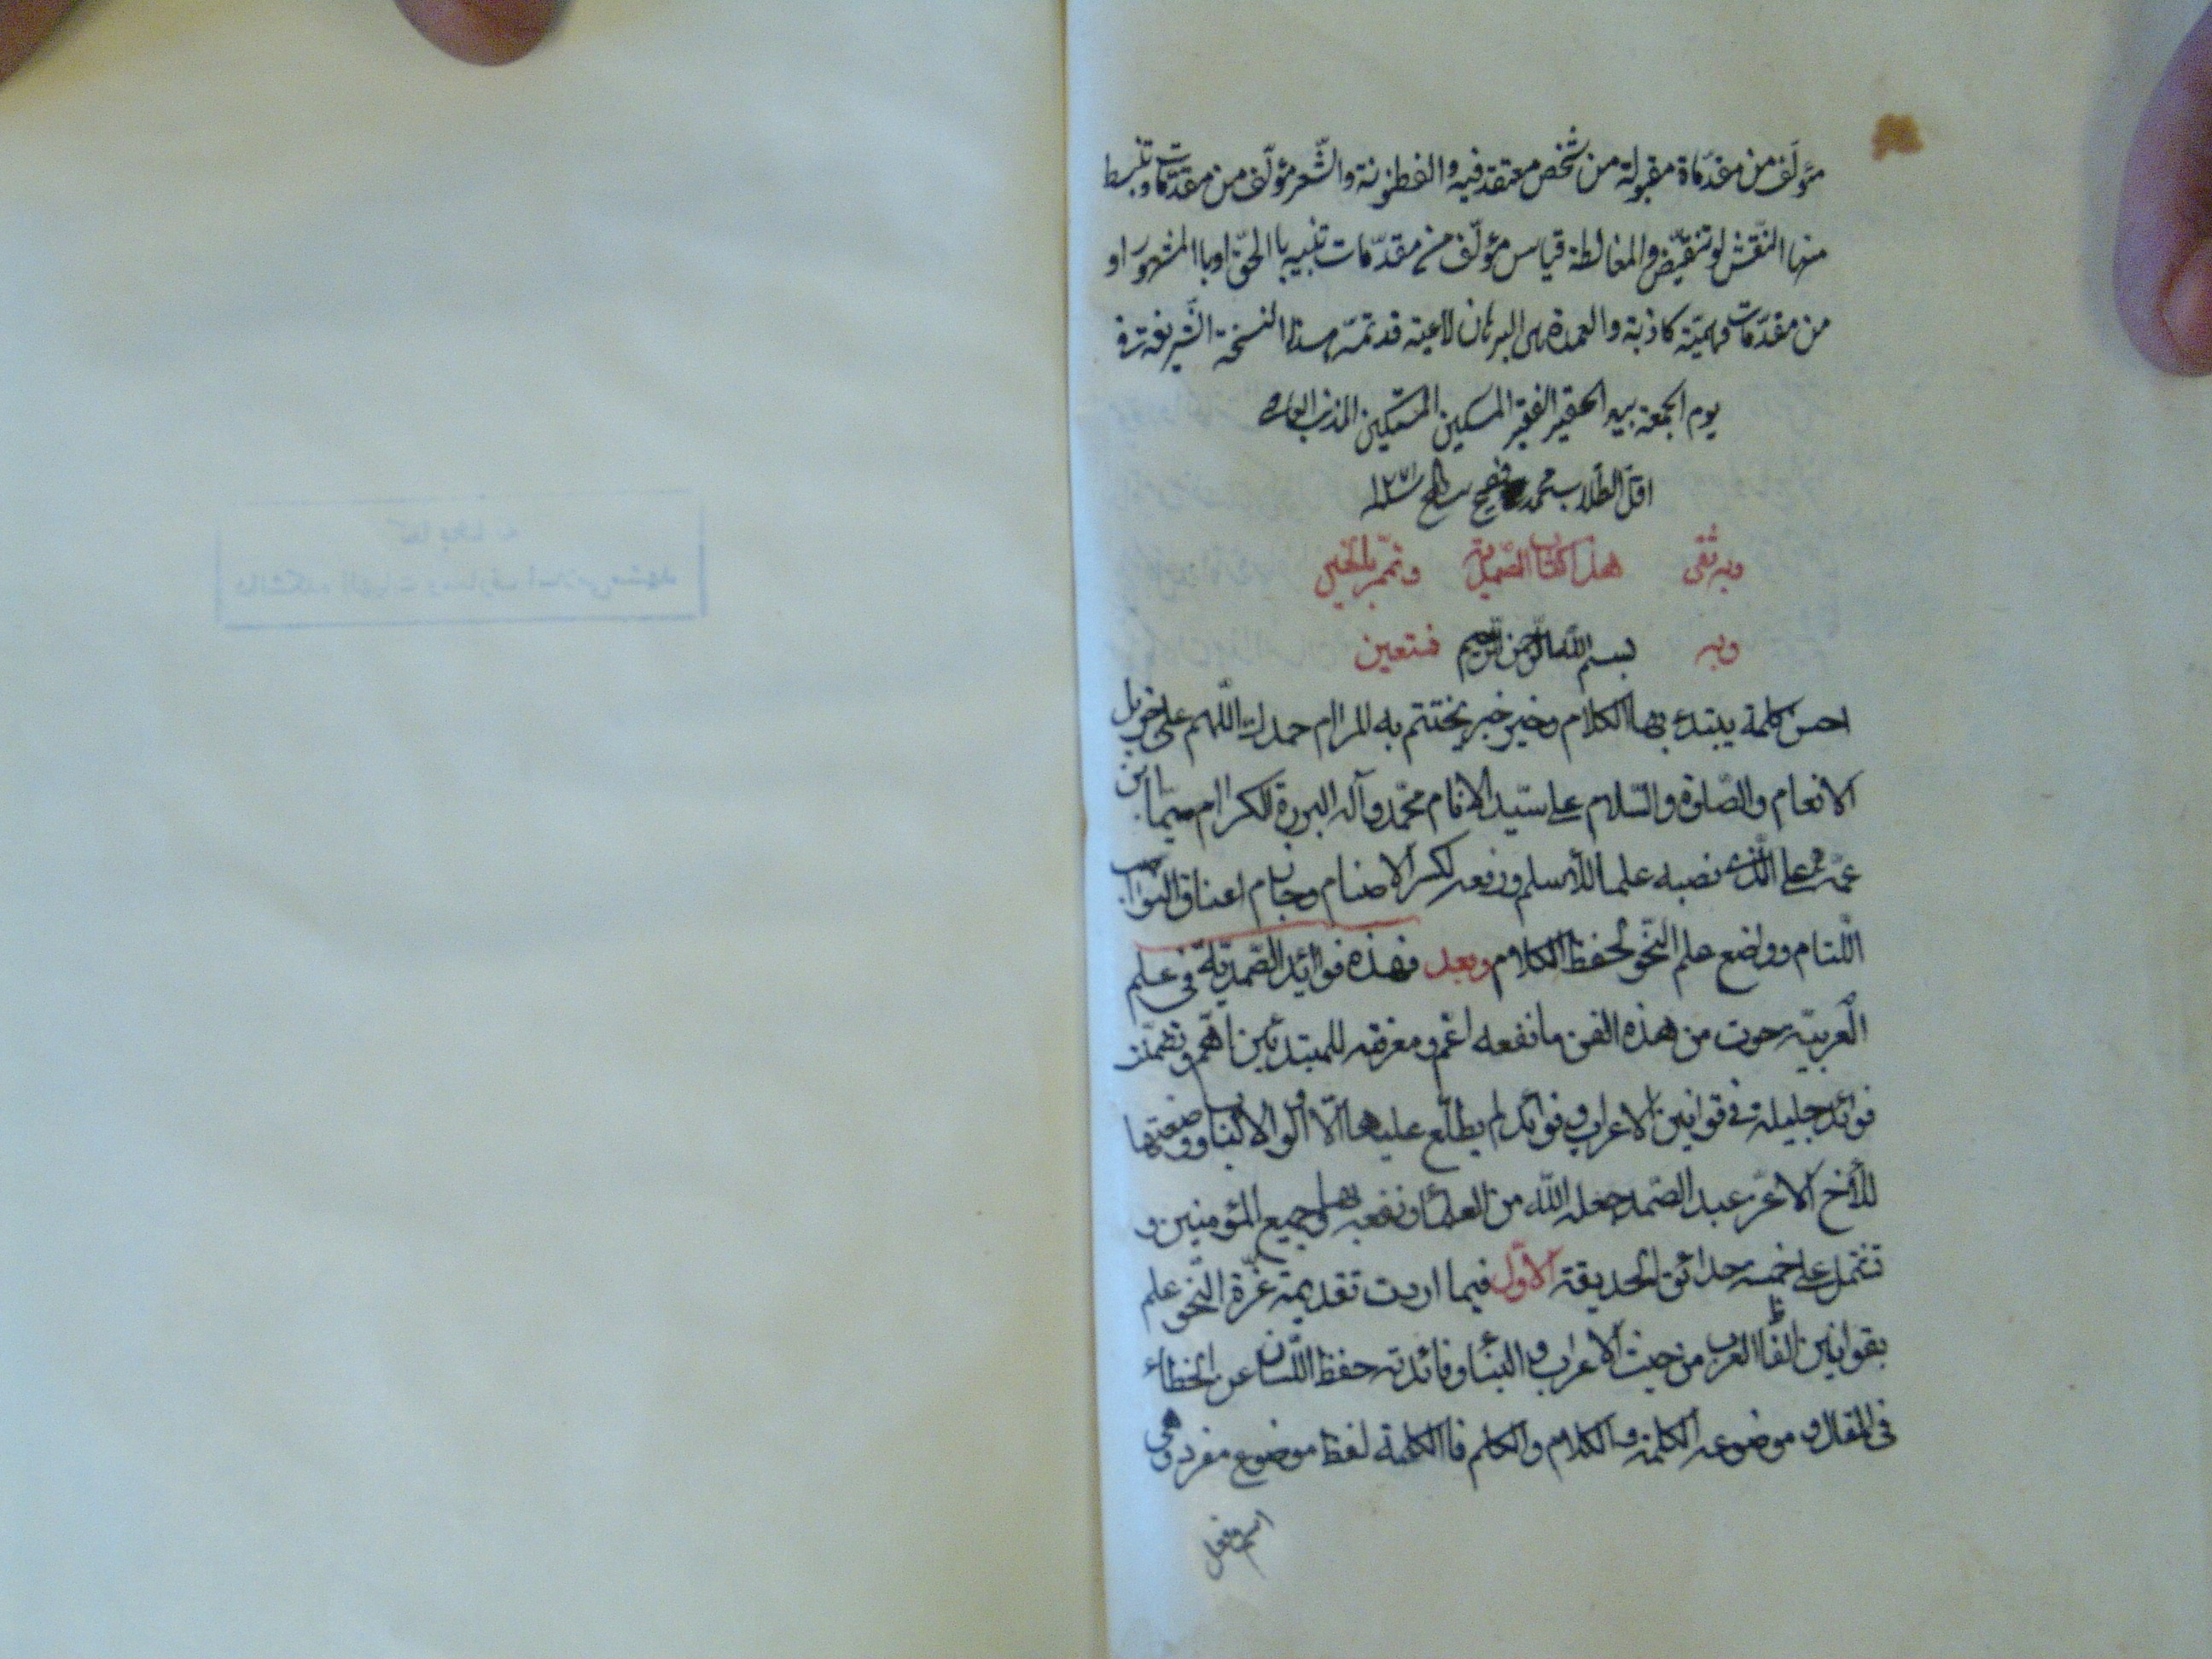 مؤلّف من مقدّماة مقبولة من شخص معتقد فيه والمظنونة والشّعر مؤلّف من مقدّمات وتنبسط
منها النّفس او تنقبض والمغالطة قياس مؤلّف من مقدّمات شبيه باالحقّ او باالمشهور او
من مقدّمات وهميّة كاذبة والعمدة هى البرهان لاغيه قد تمّة هذا النسخة الشّريفة فى
يوم الجمعة بيد الحقير الفقير المسكين المستكين المذنب العاصى
اقلّ الطّلاب محمد سنه ١٢٧١
وبه ثقى هذا كتاب الصّمديّة وتمّم بالخير
وبه بسم اللّه الرّحمن الرّحيم نستعين
احسن كلمة يبتدء بها الكلام وخير خبر يختتم به المرام حمدك اللّهم على جزيل
الانعام والصّلوة والسّلام على سيّد الانام محمّد وآله البررة الكرام سيّما ابن
عمّه على الّذى نصبه علما للأسلام ورفعه لكسر الاصنام وجازم اعناق النّواصب
اللّئام وواضع علم النّحو لحفظ الكلام وبعد فهذه فوائد الصّمديّة فى علم
العربيّه حوت من هذه الفن ما نفعه اعمّ ومعرفته للمبتدئين اهمّ وتضمّنت
فوائد جليلة فى قوانين الاعراب وفوائد لم يطلّع عليها الّا اولو الالباب ووضعتها
للأخ الاعزّ عبد الصّمد جعله اللّه من العلمأ ونفعه بها وجميع المؤمنين و
تشتمل على خمسه حدائق الحديقة الاوّل فيما اردت تقديمة غرّة النّحو علم
بقوانين الفاظ العرب من حيث الاعراب و البنأ وفائدته حفظ اللّسان عن الخطأء
فى المقال و موضوعه الكلمة والكلام والكلم فاالكلمة لفظ موضوع مفرد وهى
اسم وفعل
كتابخانه
دانشكده الهيات ومعارف اسلامى مشهد